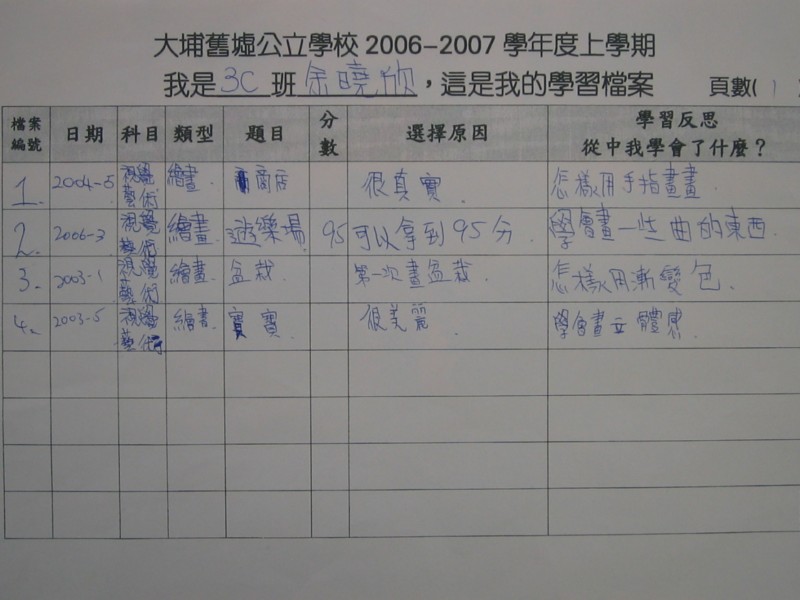 大埔舊墟公立學校 2006-2007 學年度上學期
我是 3C 班 余曉欣，這是我的學習檔案 頁數( 1
檔案編號 日期 科目 類型 題目 分數 選擇原因 學習反思 從中我學會了什麼？
1. 2004-5 視覺藝術 繪畫. 商店 很真實. 怎樣用手指畫畫.
2. 2006-3 視覺藝術 繪畫 遊樂場 95 可以拿到95分. 學會畫一些曲的東西.
3. 2003-1 視覺藝術 繪畫. 盆栽. 第一次畫盆栽. 怎樣用漸變色.
4. 2003-5 視覺藝術 繪畫. 寶寶. 很美麗. 學會畫立體